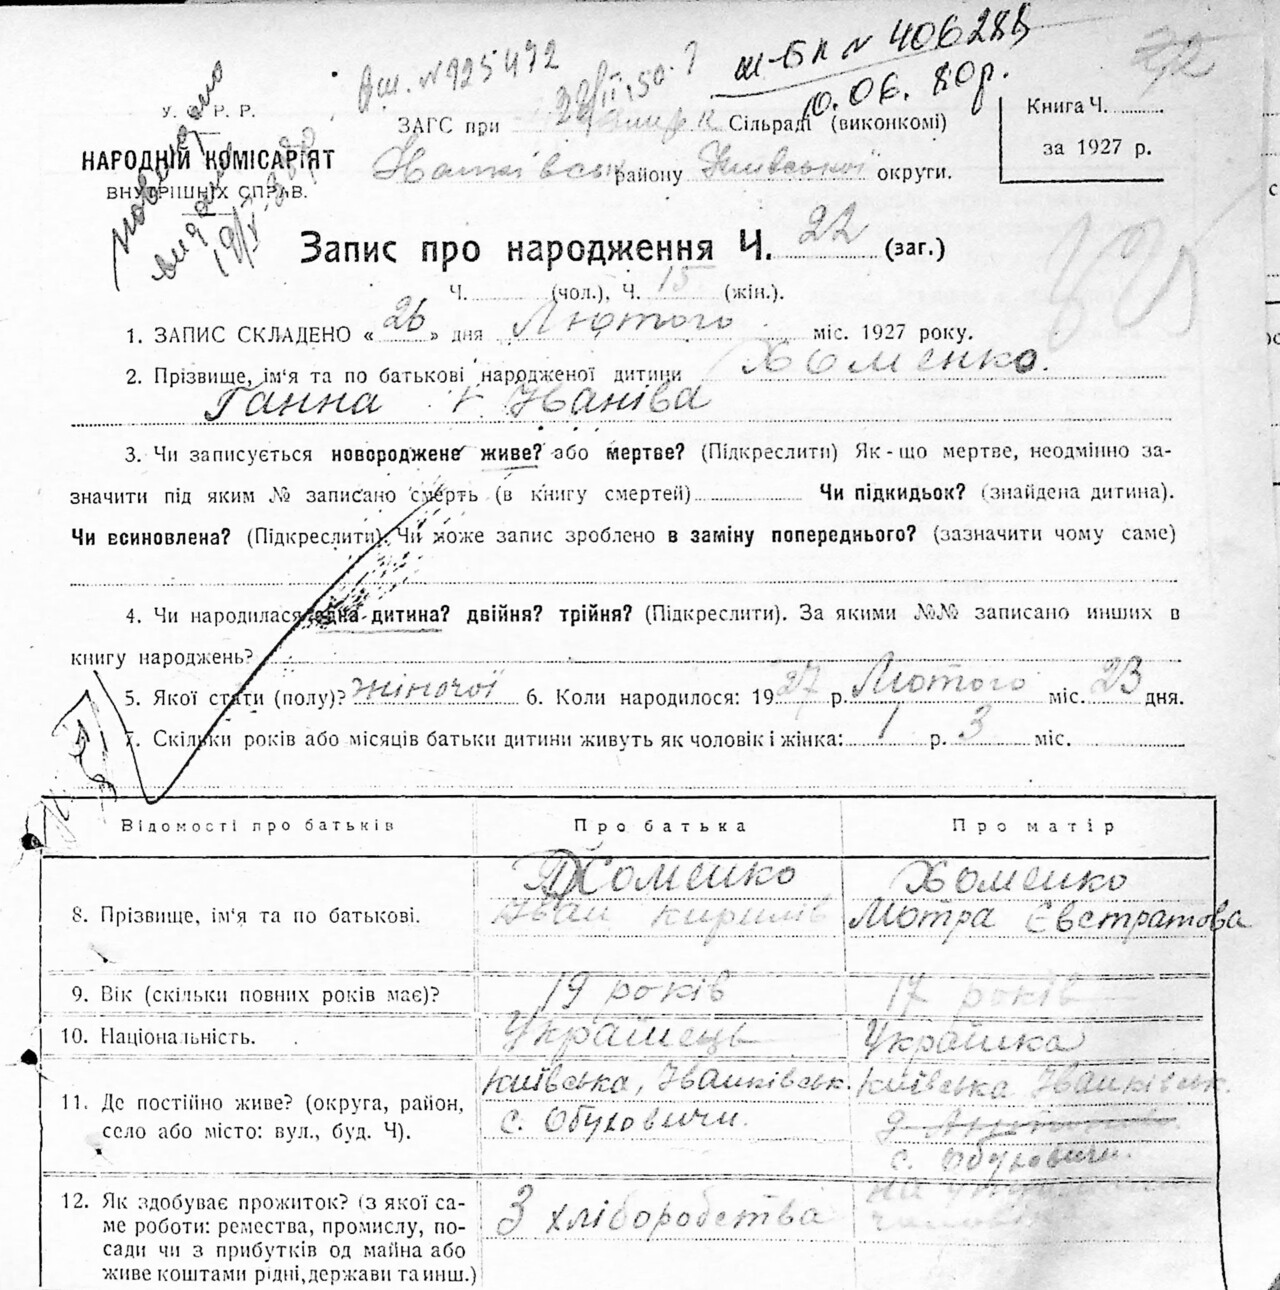 ш-БК № 406288
вш. № 925472
10.06.80р.
72
У. Р. Р.
НАРОДНІЙ КОМІСАРІЯТ
ВНУТРІШНІХ СПРАВ.
повторно
видано
ЗАГС при Сільраді (виконкомі)
району Київської округи.
Книга Ч.
за 1927 р.
Запис про народження Ч. 22 (заг.)
Ч. (чол.), Ч. 15 (жін.).
1. ЗАПИС СКЛАДЕНО « 26 » дня Лютого міс. 1927 року.
2. Прізвище, ім'я та по батькові народженої дитини Хоменко.
Ганна Іваніва
3. Чи записується новороджене живе? або мертве? (Підкреслити) Як-що мертве, неодмінно за-
значити під яким № записано смерть (в книгу смертей) Чи підкидьок? (знайдена дитина).
Чи всиновлена? (Підкреслити). Чи може запис зроблено в заміну попереднього? (зазначити чому саме)
4. Чи народилася одна дитина? двійня? трійня? (Підкреслити). За якими №№ записано инших в
книгу народжень?
5. Якої стати (полу)? жіночої 6. Коли народилося: 1927 р. Лютого міс. 23 дня.
7. Скільки років або місяців батьки дитини живуть як чоловік і жінка: 1 р. 3 міс.
Відомості про батьків Про батька Про матір
8. Прізвище, ім'я та по батькові. Хоменко Іван Кирилів Хоменко Мотра Євстратова
9. Вік (скільки повних років має)? 19 років 17 років
10. Національність. Українець Українка
11. Де постійно живе? (округа, район, Київська, Іванківськ. Київська Іванківськ.
село або місто: вул., буд. Ч). с. Обуховичи. с. Обуховичи.
12. Як здобуває прожиток? (з якої са- З хліборобства на
ме роботи: ремества, промислу, по-
сади чи з прибутків од майна або
живе коштами рідні, держави та инш.)